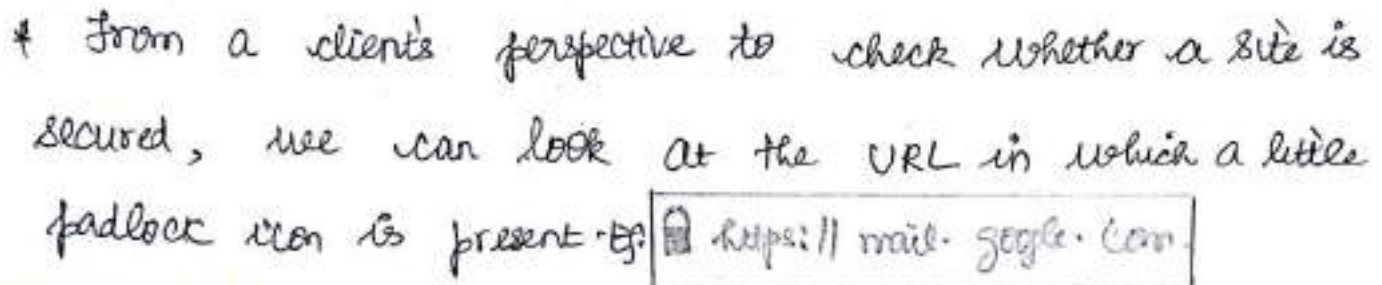 * From a client's perspective to check whether a site is
secured, we can look at the URL in which a little
padlock icon is present. Eg: https:// mail. gogle. com.